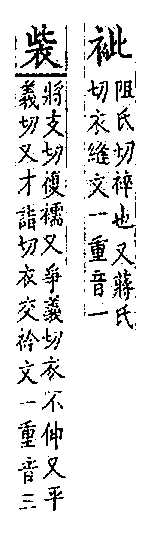 䘣
阻氏切䘹也又蔣氏
切衣縫文一重音一
裝
將支切複襦又爭義切衣不伸又平
義切又才詣切衣交衿文一重音三